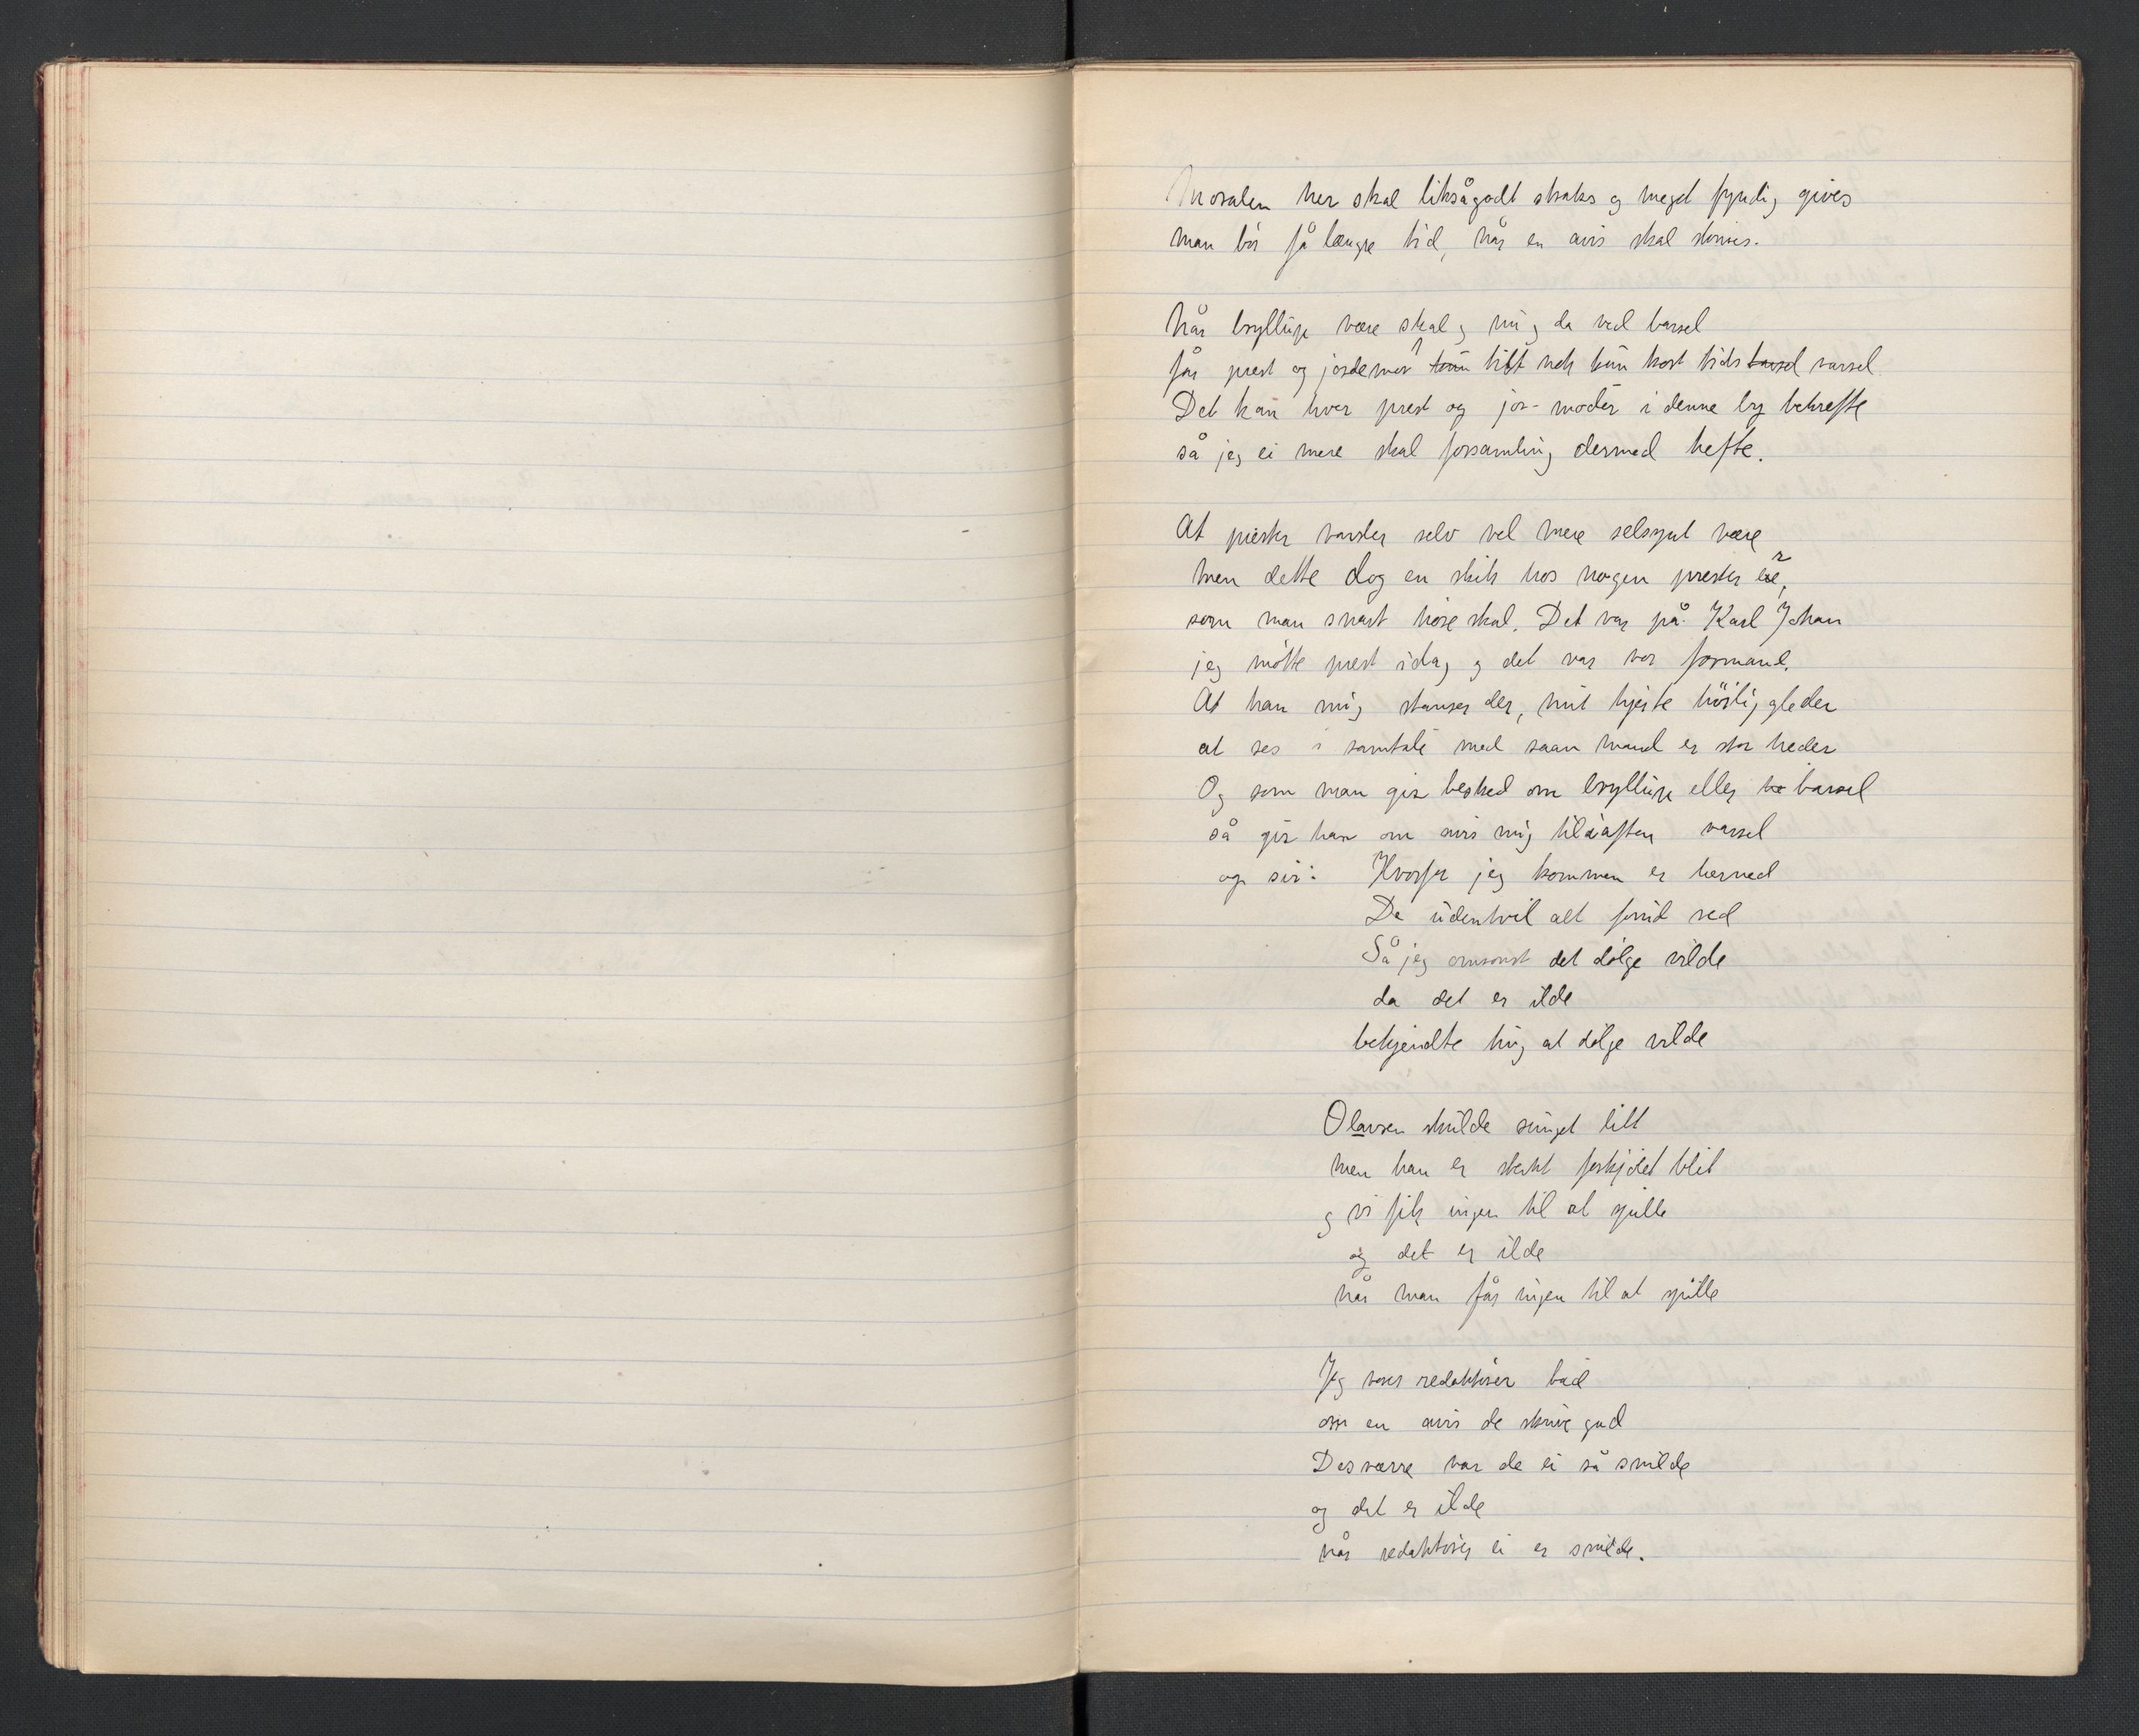 Moralen her skal liksågodt straks og meget fyndig gives
man bør få længre tid, når en avis skal skrives.
Når bryllup være skal og nu og da ved barsel
får prest og jordemor litt nok kun kort tids varsel.
Det kan hver prest og jor-moder i denne by bekrefte
så jeg ei mere skal forsamling dermed hefte.
At prester varsler selv vel mere selsynt være
men dette dog en skik hos nogen prester er,
som man snart høre skal. Det var på Karl Johan
jeg møtte prest idag og det var vor formand.
At han mig stanser der, mit hjerte hørlig gleder
at ses i samtale med saan mand er stor heder
Og som man gir besked om bryllup eller barsel
så gir han om avis mig til iaften varsel
og sir: Hvorfor jeg kommen er herned
De udentvil alt forud ved
Så jeg omsonst det dølge vilde
da det er ilde
bekjendte ting at dølge vilde
Olavsen skulde sunget litt
men han er sterkt forkjølet blit
og vi fik ingen til at spille
og det er ilde
når man får ingen til at spille
Jeg vores redaktører bad
om en avis de skrive gad
Desværre var de ei så snilde
og det er ilde
når redaktører ei er snilde.